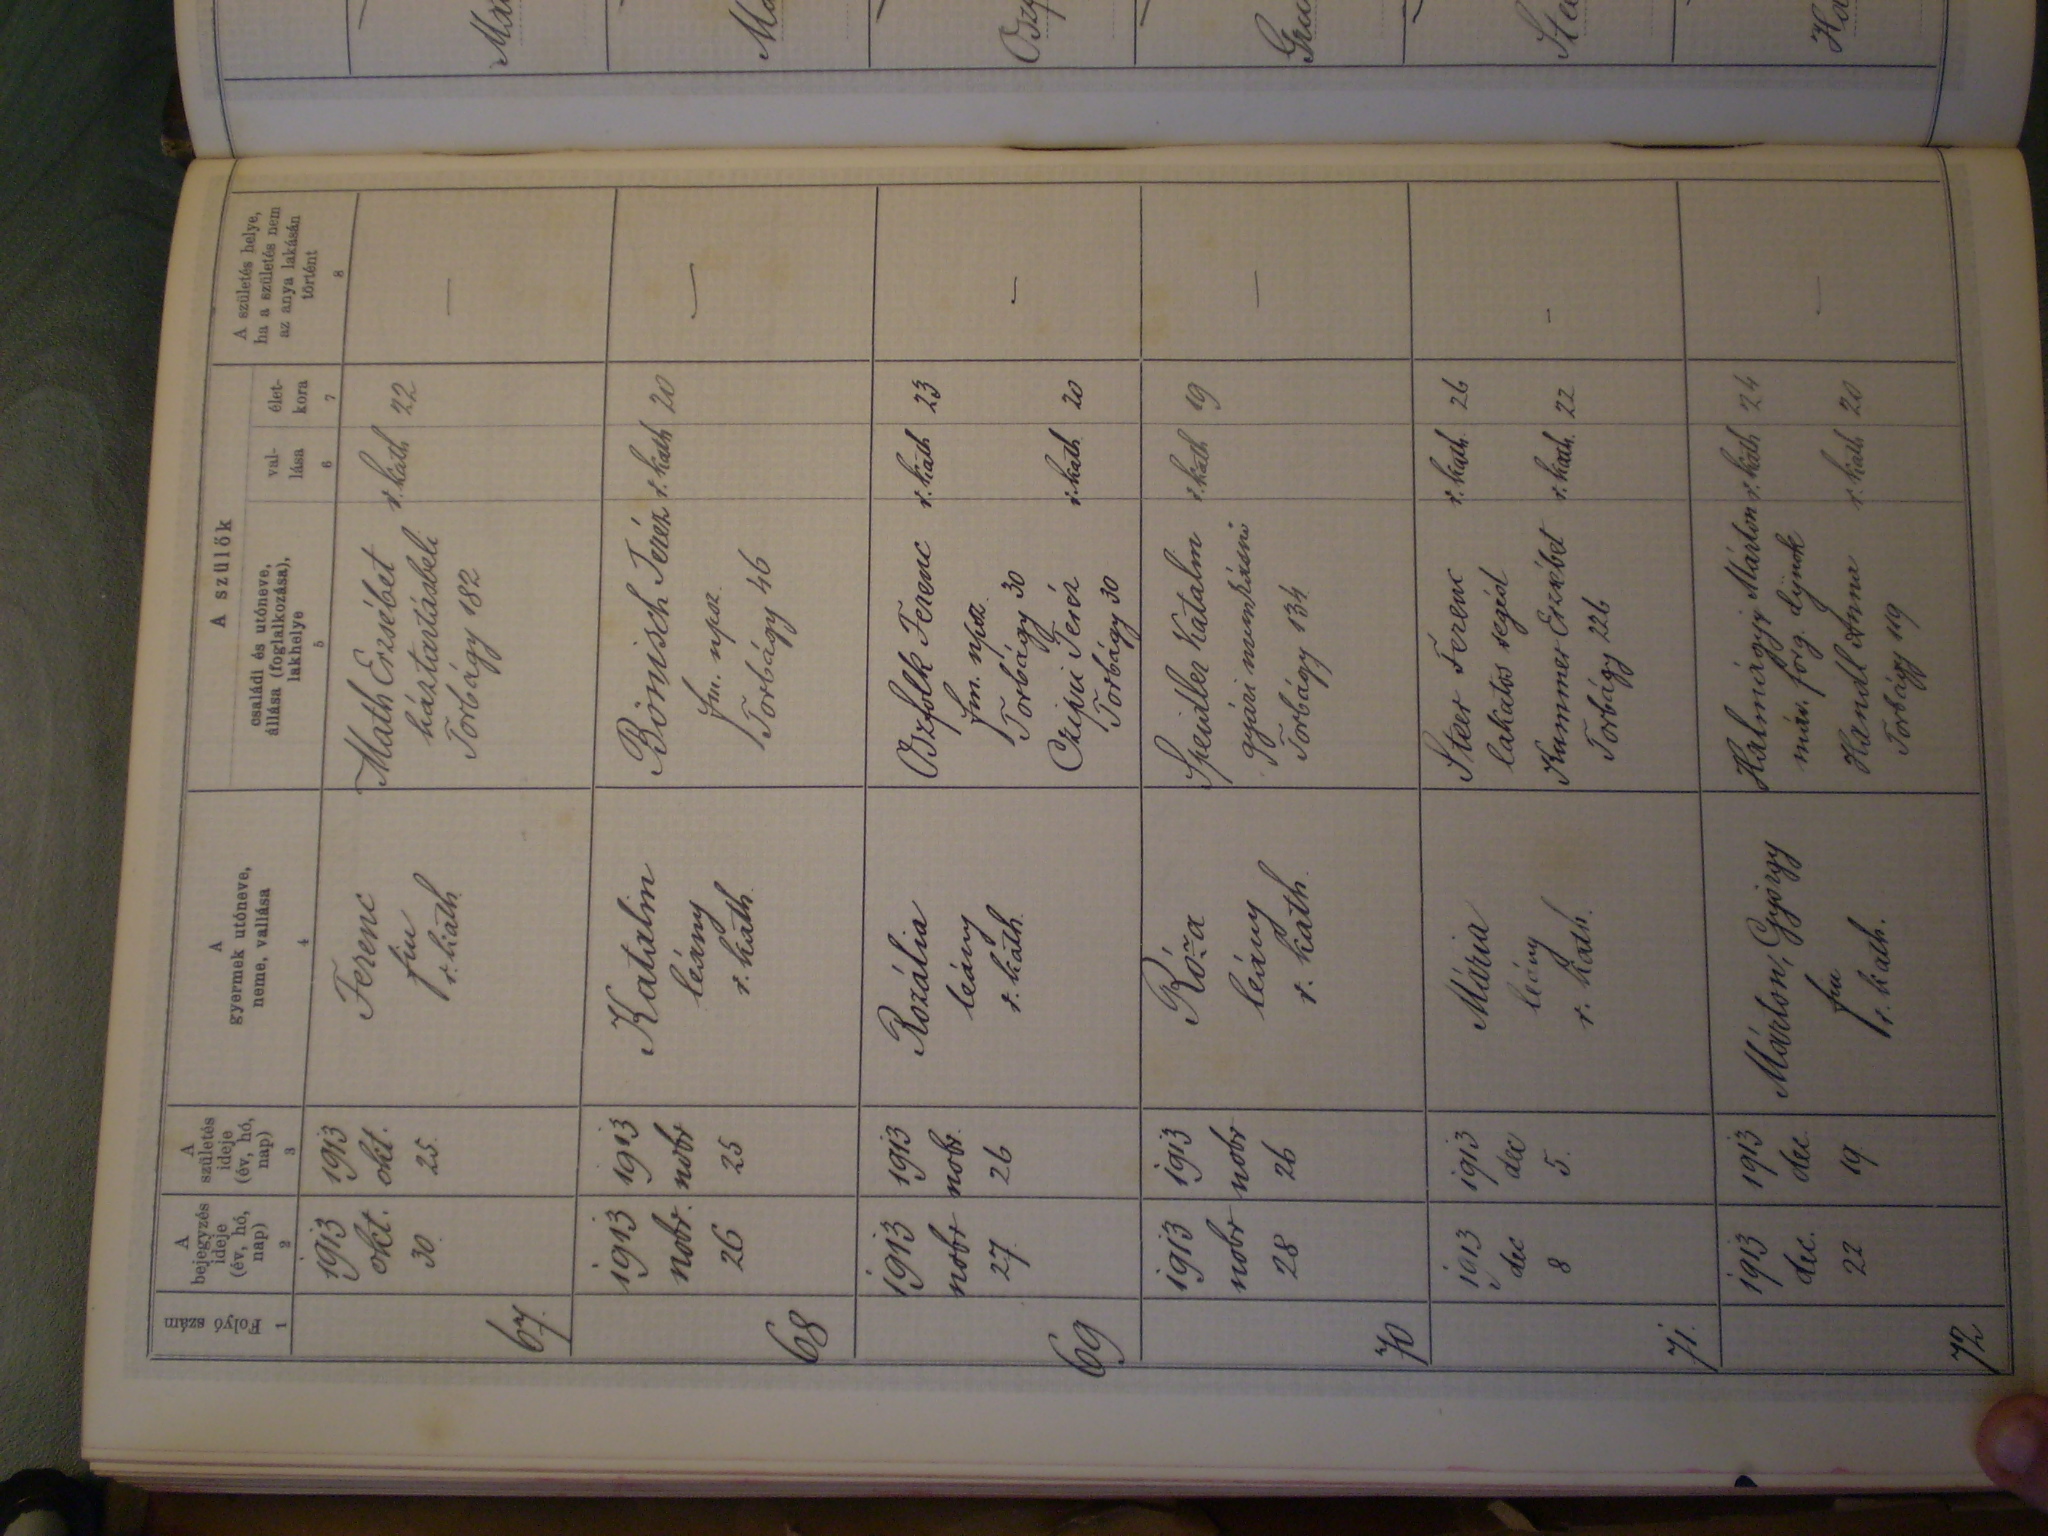 Folyó szám
A bejegyzés ideje (év, hó, nap)
A születés ideje (év, hó, nap)
A gyermek utóneve, neme, vallása
A szülők
családi és utóneve, állása (foglalkozása), lakhelye
val-lása
élet-kora
A születés helye, ha a születés nem az anya lakásán történt
1
2
3
4
5
6
7
8
67.
1913 okt. 30.
1913 okt. 25.
Ferenc
fiu
r. kath.
Math Erzsébet r. kath 22
háztartásbeli
Torbágy 182
—
68
1913 nobr. 26
1913 nobr 25
Katalin
leány
r. kath.
Bönisch Teréz r. kath 20
fm. npsz.
Torbágy 46
—
69
1913 nobr 27.
1913 nobr. 26
Rozália
leány
r. kath.
Oszfolk Ferenc r. kath 23
fm. npsz.
Torbágy 30
Czipri Teréz r. kath. 20
Torbágy 30
—
70
1913 nobr 28
1913 nobr 26
Róza
leány
r. kath.
Speidler Katalin r. kath 19
gyári munkásnő
Torbágy 134
—
71.
1913 dec 8
1913 dec 5.
Mária
leány
r. kath.
Steer Ferenc r. kath. 26
lakatos segéd
Kammer Erzsébet r. kath. 22
Torbágy 226
–
72
1913 dec. 22
1913 dec. 19
Márton, György
fiu
r. kath.
Halmágyi Márton r. kath 24
máv. forg. díjnok
Handl Anna r. kath 20
Torbágy 119
—